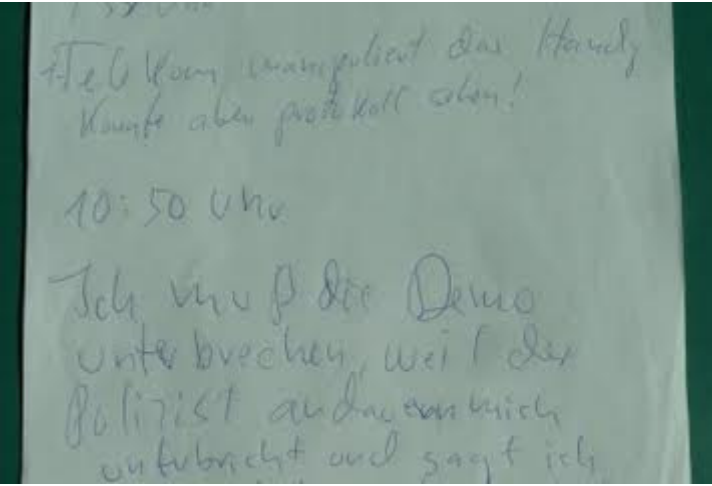 Telekom manipuliert das Handy
Konnte aber protokoll sehen!
10:50 Uhr
Ich muß die Demo
unterbrechen, weil der
Polizist andauern mich
unterbricht und sagt ich